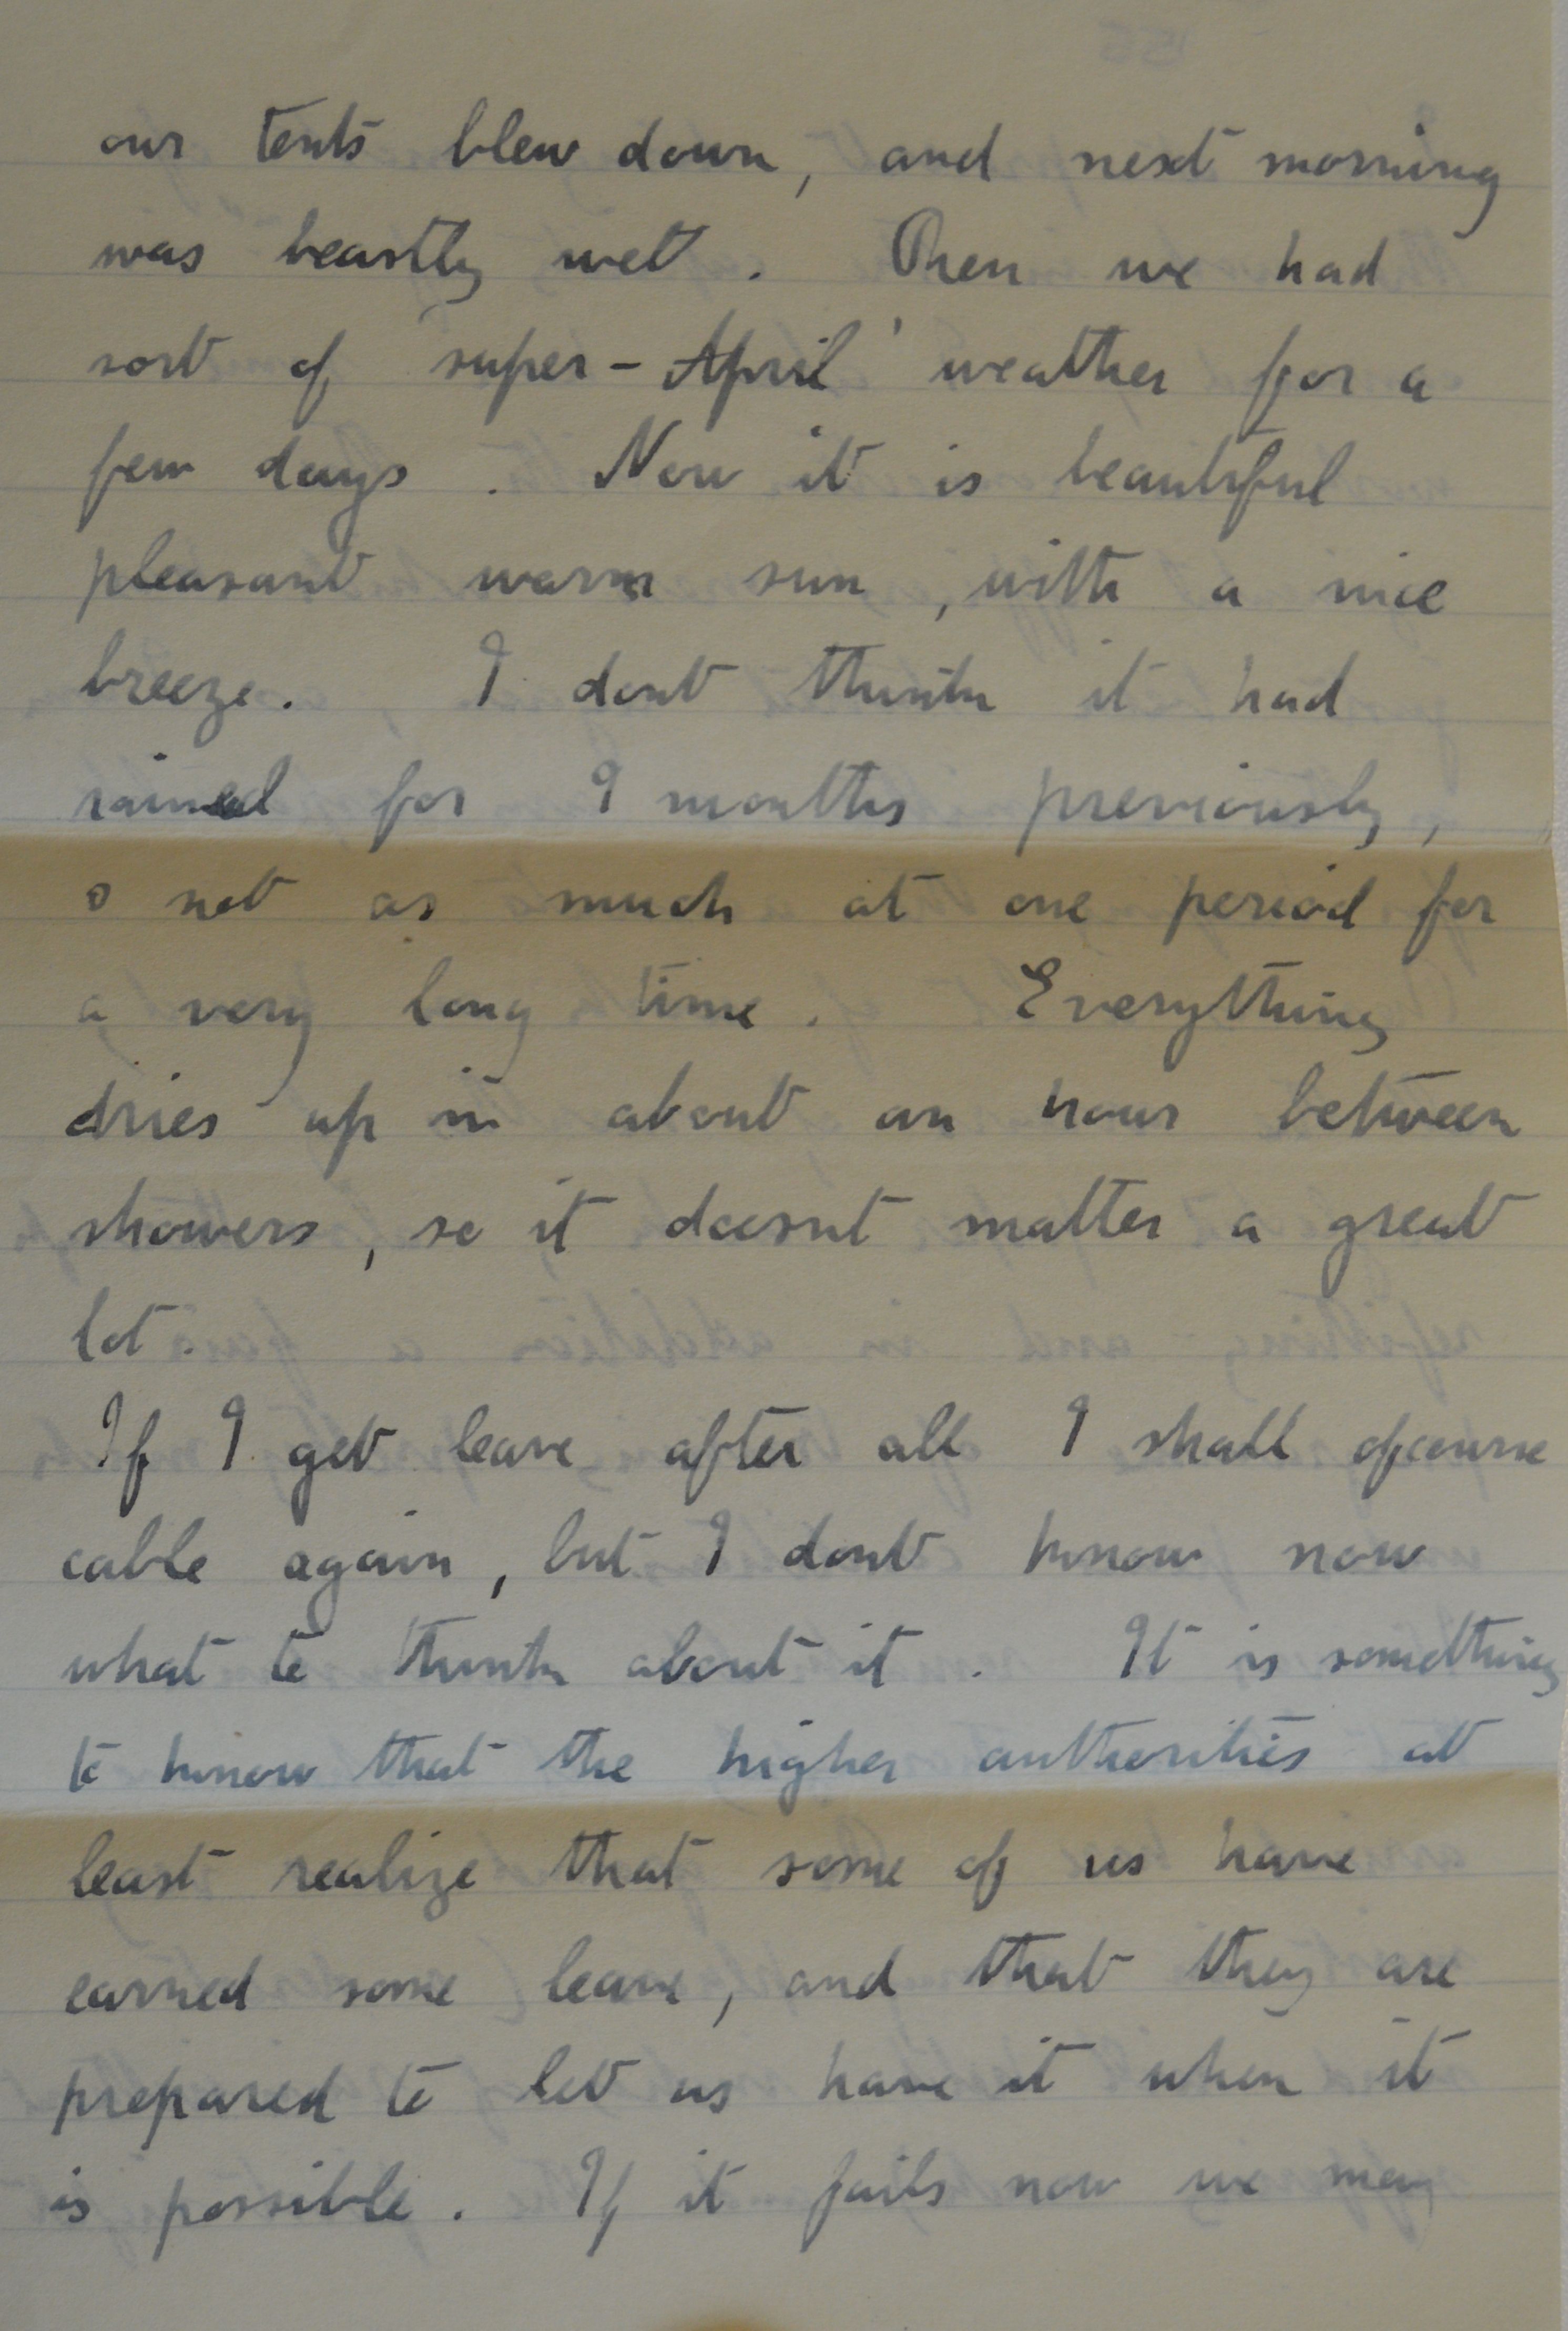 our tents blew down, and next morning
was beastly wet. Then we had
sort of 'super-April' weather for a
few days. Now it is beautiful
pleasant warm sun, with a nice
breeze. I dont think it had
rained for 9 months previously,
o not as much at one period for
a very long time. Everything
dries up in about an hour between
showers, so it doesnt matter a great
lot.
If I get leave after all I shall ofcourse
cable again, but I dont know now
what to think about it. It is something
to know that the higher authorities at
least realize that some of us have
earned some leave, and that they are
prepared to let us have it when it
is possible. If it fails now we may